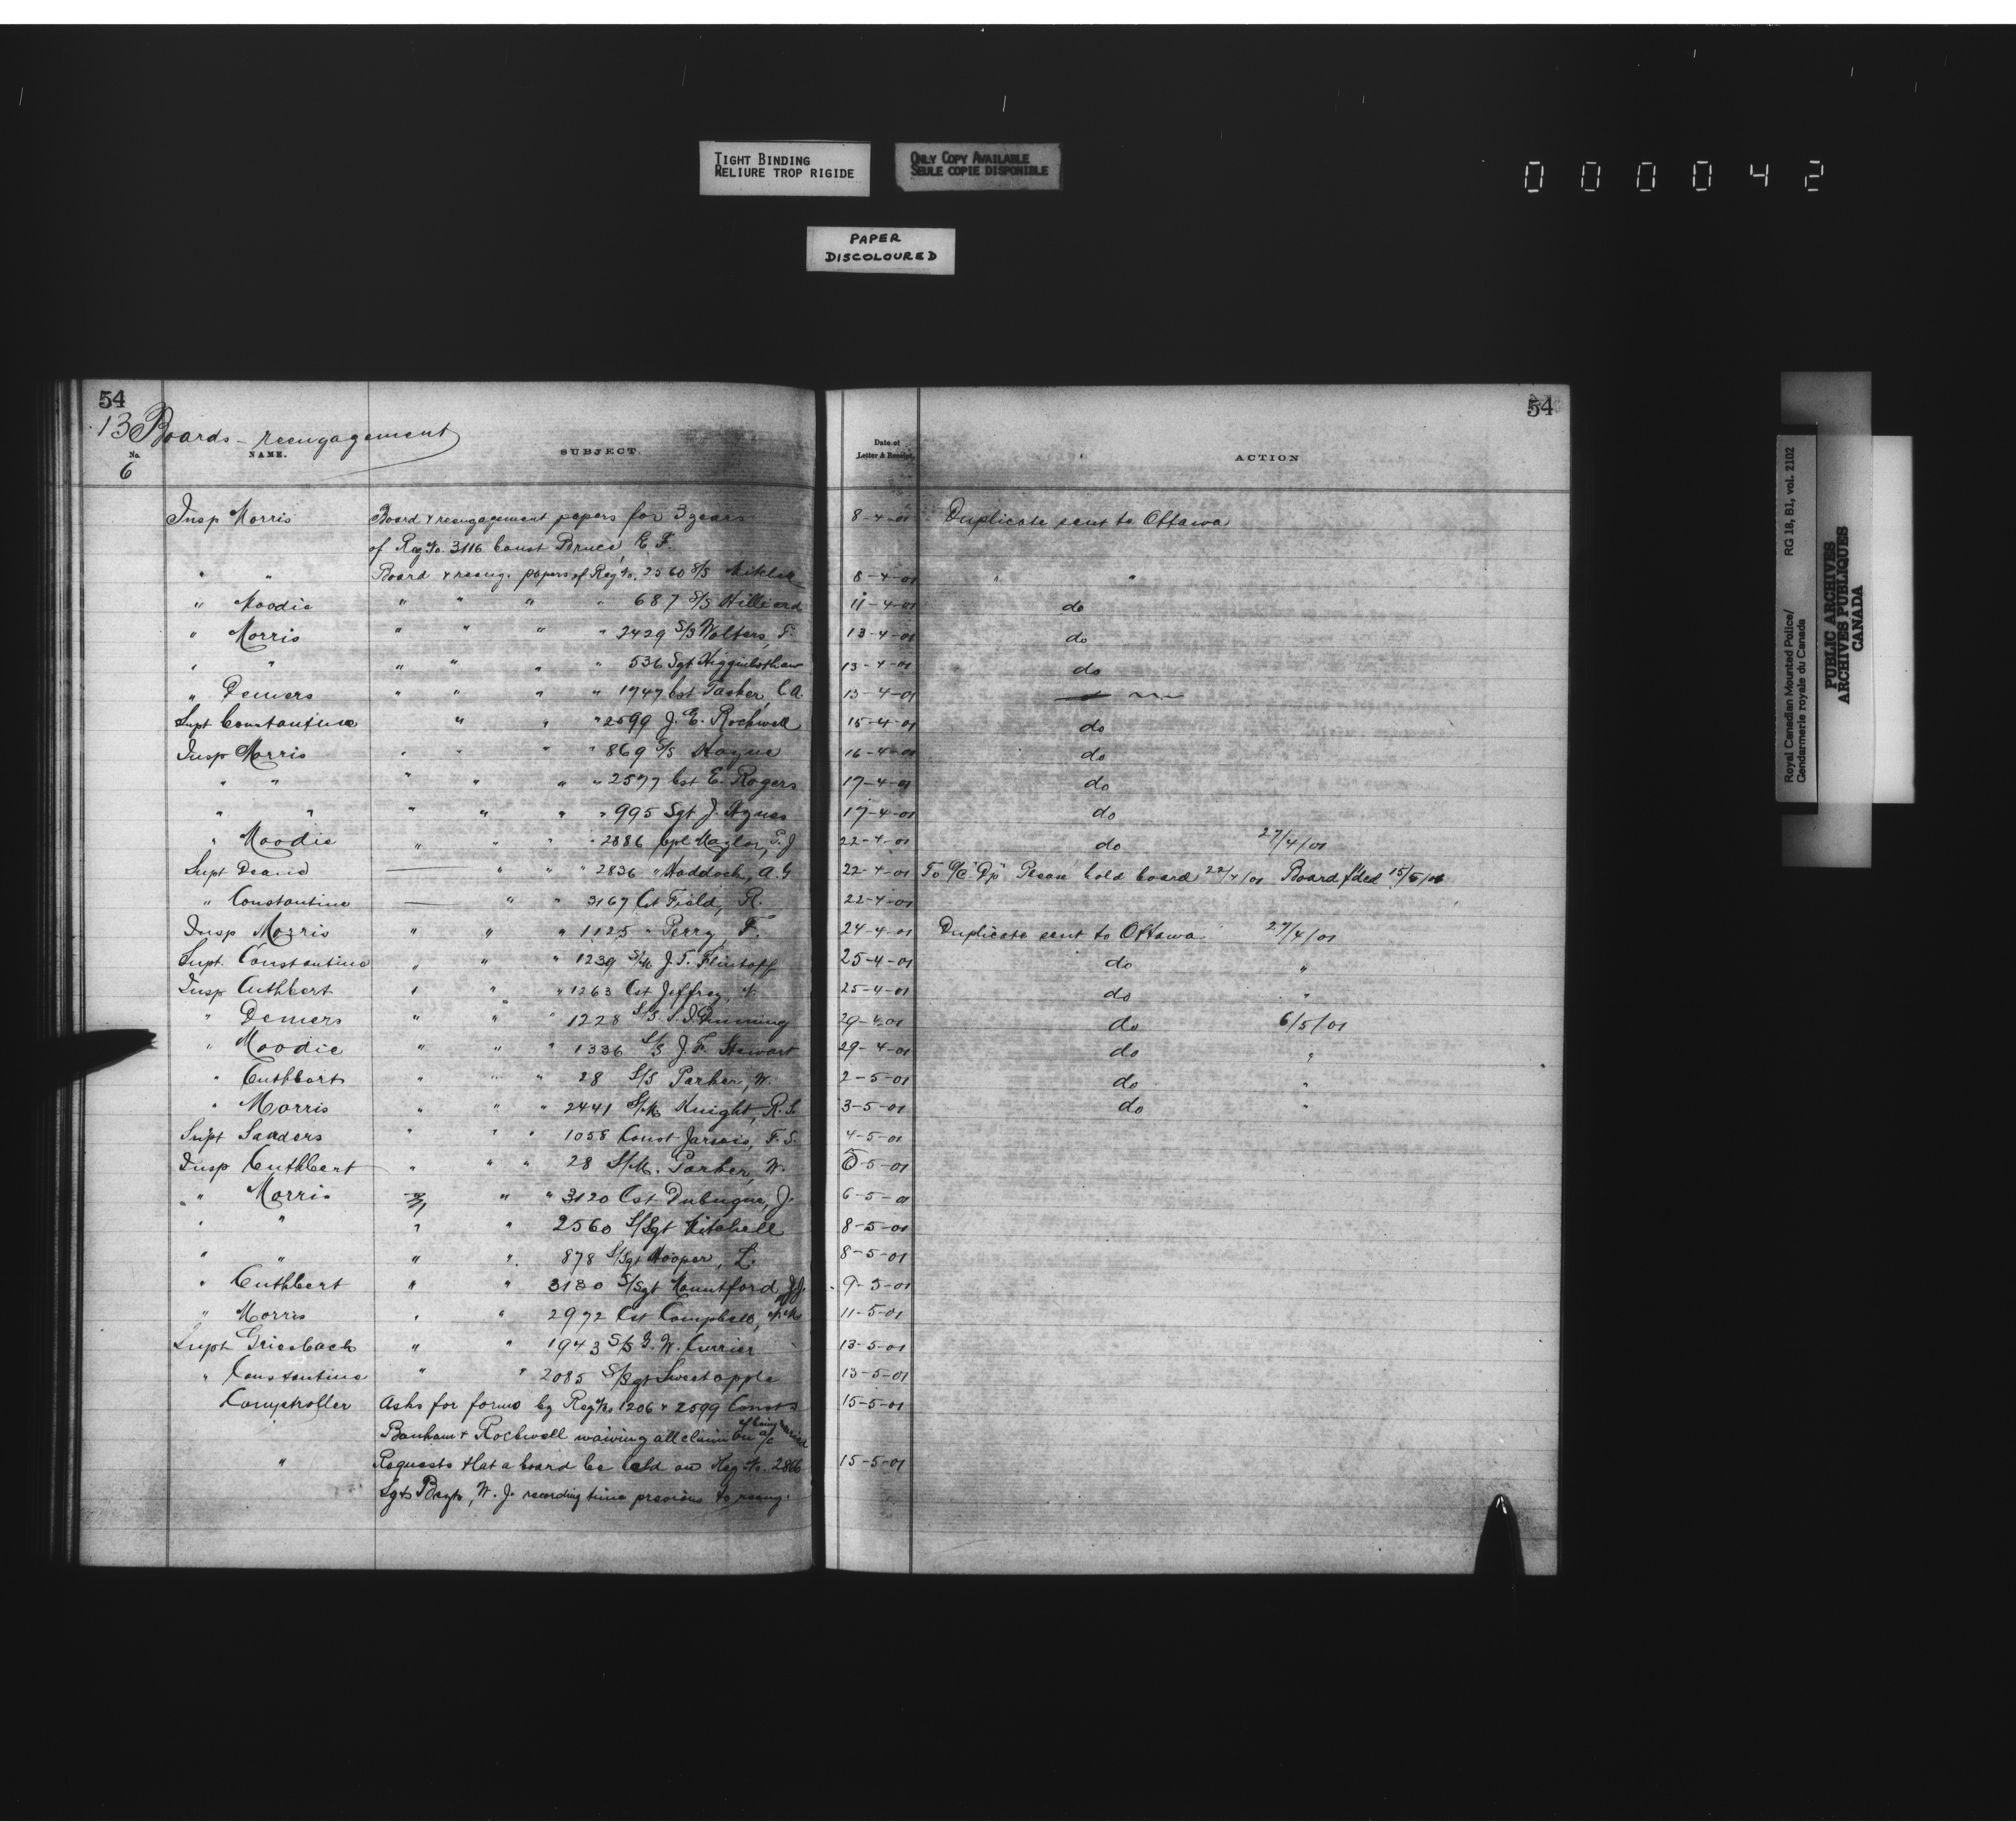 TIGHT BINDING
RELIURE TROP RIGIDE
ONLY COPY AVAILABLE
SEULE COPIE DISPONIBLE
000042
PAPER
DISCOLOURED
54 54
13 Boards - reengagement
No. NAME. SUBJECT. Date of Letter & Receipt. ACTION
6
Insp Morris Board & reengagement papers for 3 years 8-4-01 Duplicate sent to Ottawa
of Reg. No. 3116 Const Bruce, E. F.
" " Board & reeng. papers of Reg No. 2560 S/S 8-4-01 " "
" Moodie " " " " 687 S/S Hilliard 11-4-01 do
" Morris " " " " 2429 S/S Wolters, F. 13-4-01 do
" " " " " " 536 Sgt Higginbotham 13-4-01 do
" Demers " " " " 1747 Cst Tasker, C.A. 13-4-01
Supt Constantine " " " 2599 J. E. Rockwell 15-4-01 do
Insp Morris " " " " 869 S/S Hayne 16-4-01 do
" " " " " " 2577 Cst E. Rogers 17-4-01 do
" " " " " " 995 Sgt J. Hynes 17-4-01 do
" Moodie " " " " 2886 Cpl Naylor, 22-4-01 do 27/4/01
Supt Deane — " " " 2836 " Haddock, A.G 22-4-01 To O/C "Dp" Please hold board 22/4/01 Board f'ded 15/5/01
" Constantine — " " 3167 Cst Field, R. 22-4-01
Insp Morris " " " 1125 " Perry, F. 24-4-01 Duplicate sent to Ottawa 27/4/01
Supt. Constantine " " " 1239 S/M J. T. Flintoff 25-4-01 do "
Insp Cuthbert " " " 1263 Cst Jeffrey, 25-4-01 do "
" Demers " " " 1228 S/S 29-4-01 do 6/5/01
" Moodie " " " 1336 S/S J. F. Stewart 29-4-01 do "
" Cuthbert " " " 28 S/S Parker, W. 2-5-01 do "
" Morris " " " 2441 S/M Knight, R.S. 3-5-01 do "
Supt Sanders " " " 1058 Const Jarvis, F. S. 4-5-01
Insp Cuthbert " " " 28 S/M. Parker, W. 5-5-01
" Morris " " 3120 Cst Dubuque, J. 6-5-01
" " " " 2560 S/Sgt Mitchell 8-5-01
" " " " 878 S/Sgt Hooper, L. 8-5-01
" Cuthbert " " 3130 S/Sgt Mountford 9-5-01
" Morris " " 2972 Cst Campbell, 11-5-01
Supt Griesbach " " 1943 S/S G. W. Currier 13-5-01
" Constantine " " 2085 S/Sgt Sweetapple 13-5-01
Comptroller Asks for forms by Reg No. 1206 & 2599 Consts 15-5-01
Banham & Rockwell waiving all claim on a/c of being married
" Requests that a board be held on Reg. No. 2866 15-5-01
Sgt W. J. recording time previous to reeng.
Royal Canadian Mounted Police/ RG 18, B1, vol. 2102
Gendarmerie royale du Canada
PUBLIC ARCHIVES
ARCHIVES PUBLIQUES
CANADA